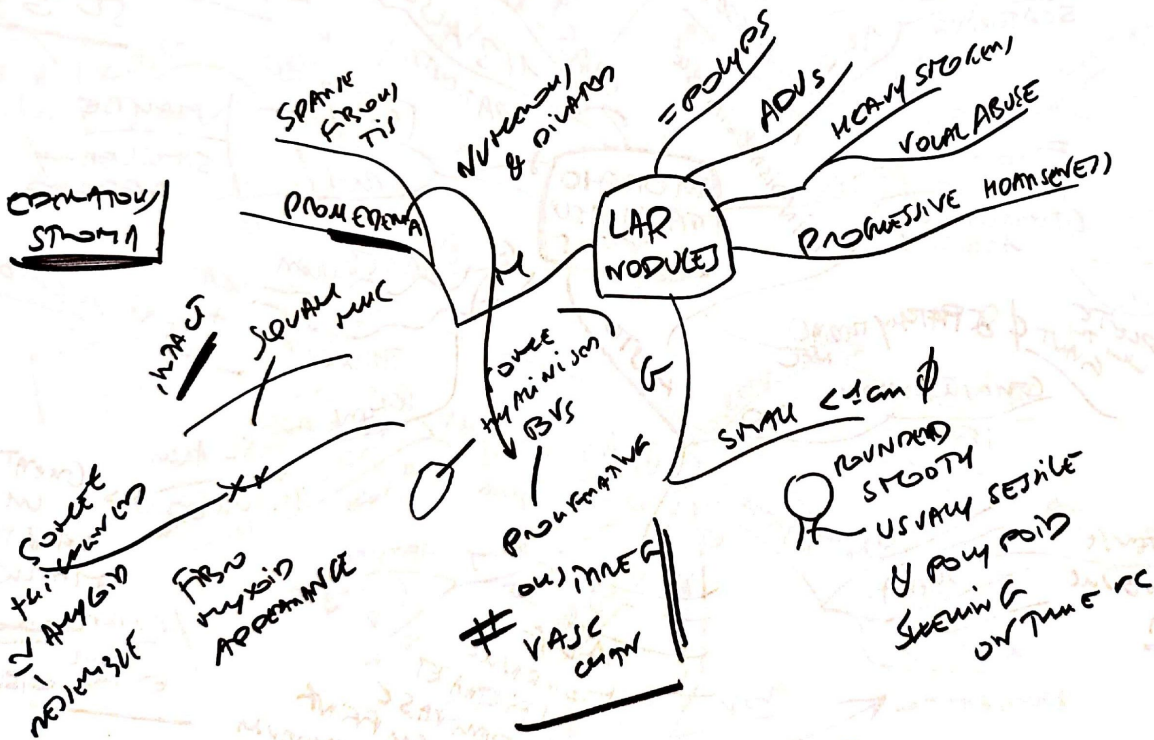 LAR
NODULES
= POLYPS
ADVS
HEAVY SMOKERS
VOCAL ABUSE
PROGRESSIVE HOARSENESS
G
SMALL < 1cm ϕ
ROUNDED
SMOOTH
USUALLY SESSILE
POLYPOID
SWELLING
ON TRUE VC
M
NUMEROUS
& DILATED
SPARSE
FIBROUS
TIS
PROM EDEMA
EDEMATOUS
STROMA
INTACT
SQUAM
MUC
SOME
HYALINISED
BVS
PROLIFERATING
VASC
CHAN
SOMET
AMYLOID
RESEMBLE
FIBRO
MYXOID
APPEARANCE